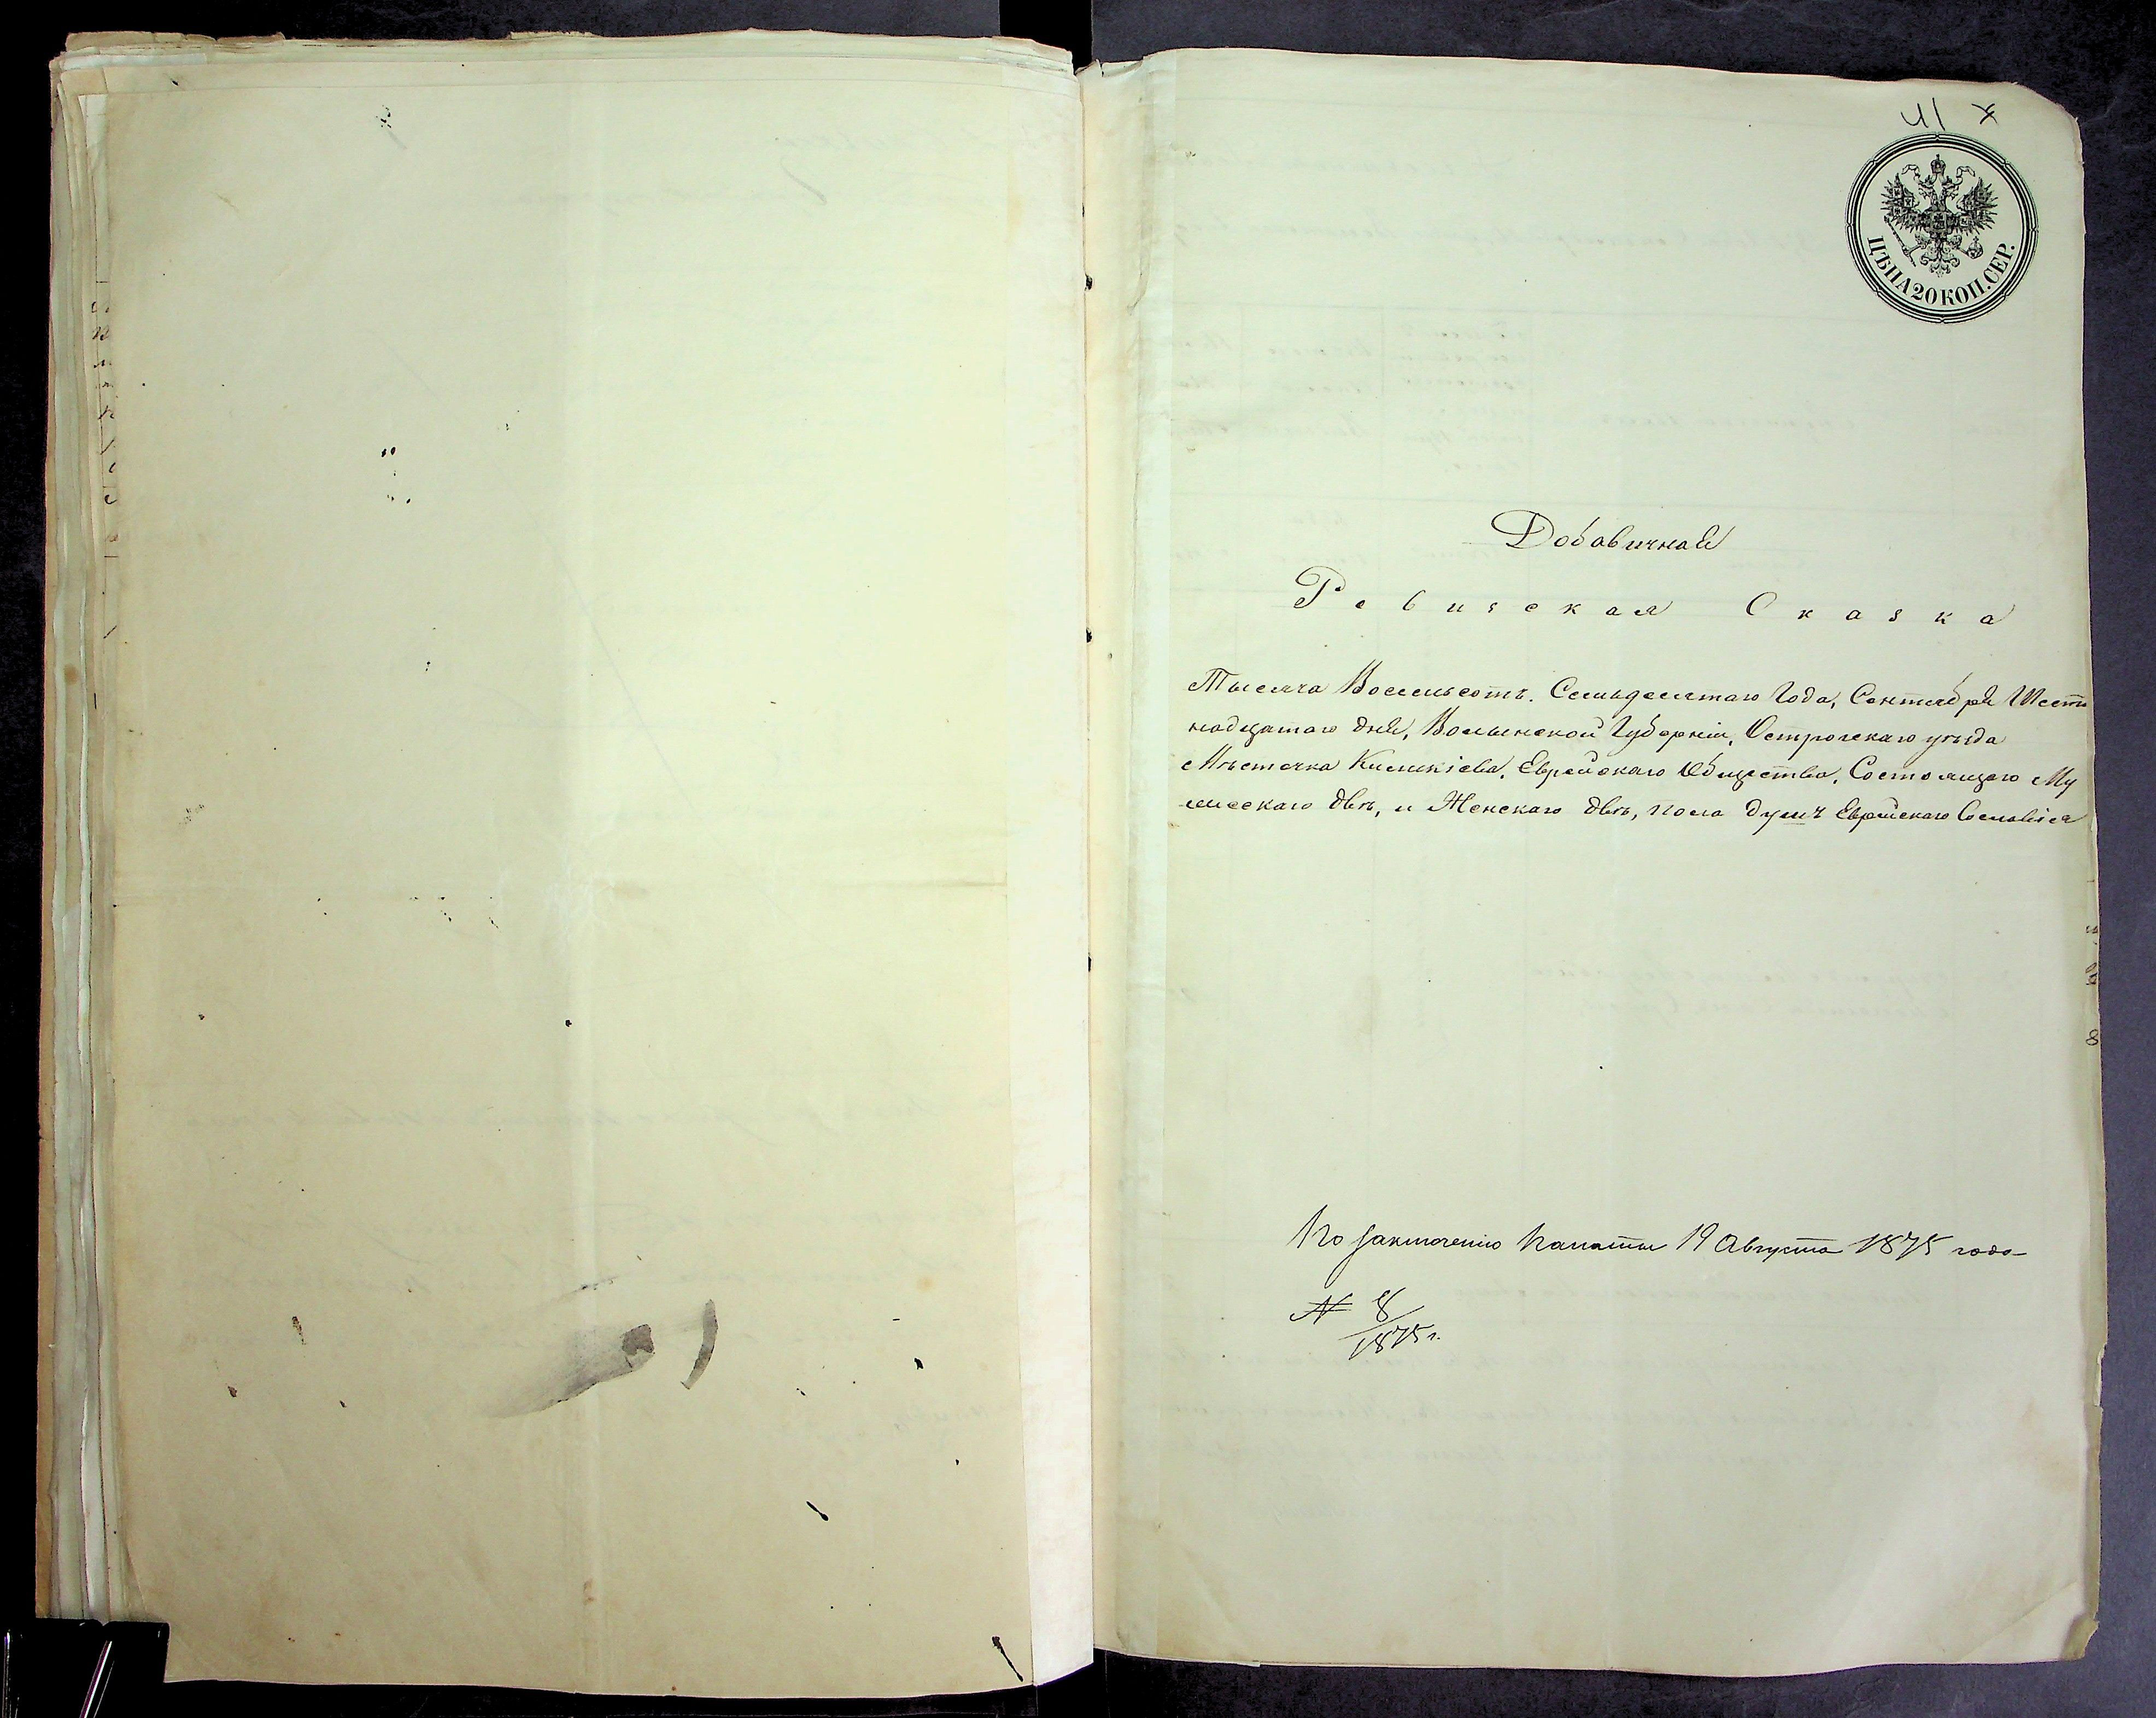 41
ЦѢНА 20 КОП. СЕР.
Добавичная
Ревизская Сказка
Тысяча Восемьсотъ Семьдесятаго Года, Сентября Шест
надцатаго дня, Волынской Губерніи, Острожскаго уѣзда
Мѣстечка Киликіева, Еврейскаго Общества, Состоящаго Му
жескаго двѣ, и Женскаго двѣ, пола душъ Еврейскаго Сословія
По заключенію Палаты 19 Августа 1875 года
№ 8/1875 г.